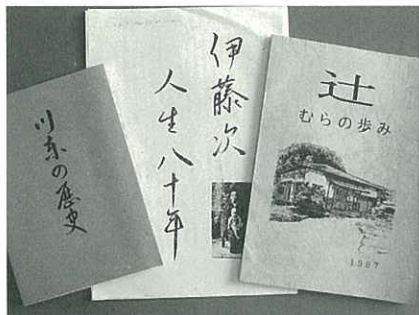 川東の歴史
伊藤次
人生八十年
辻
むらの歩み
1987